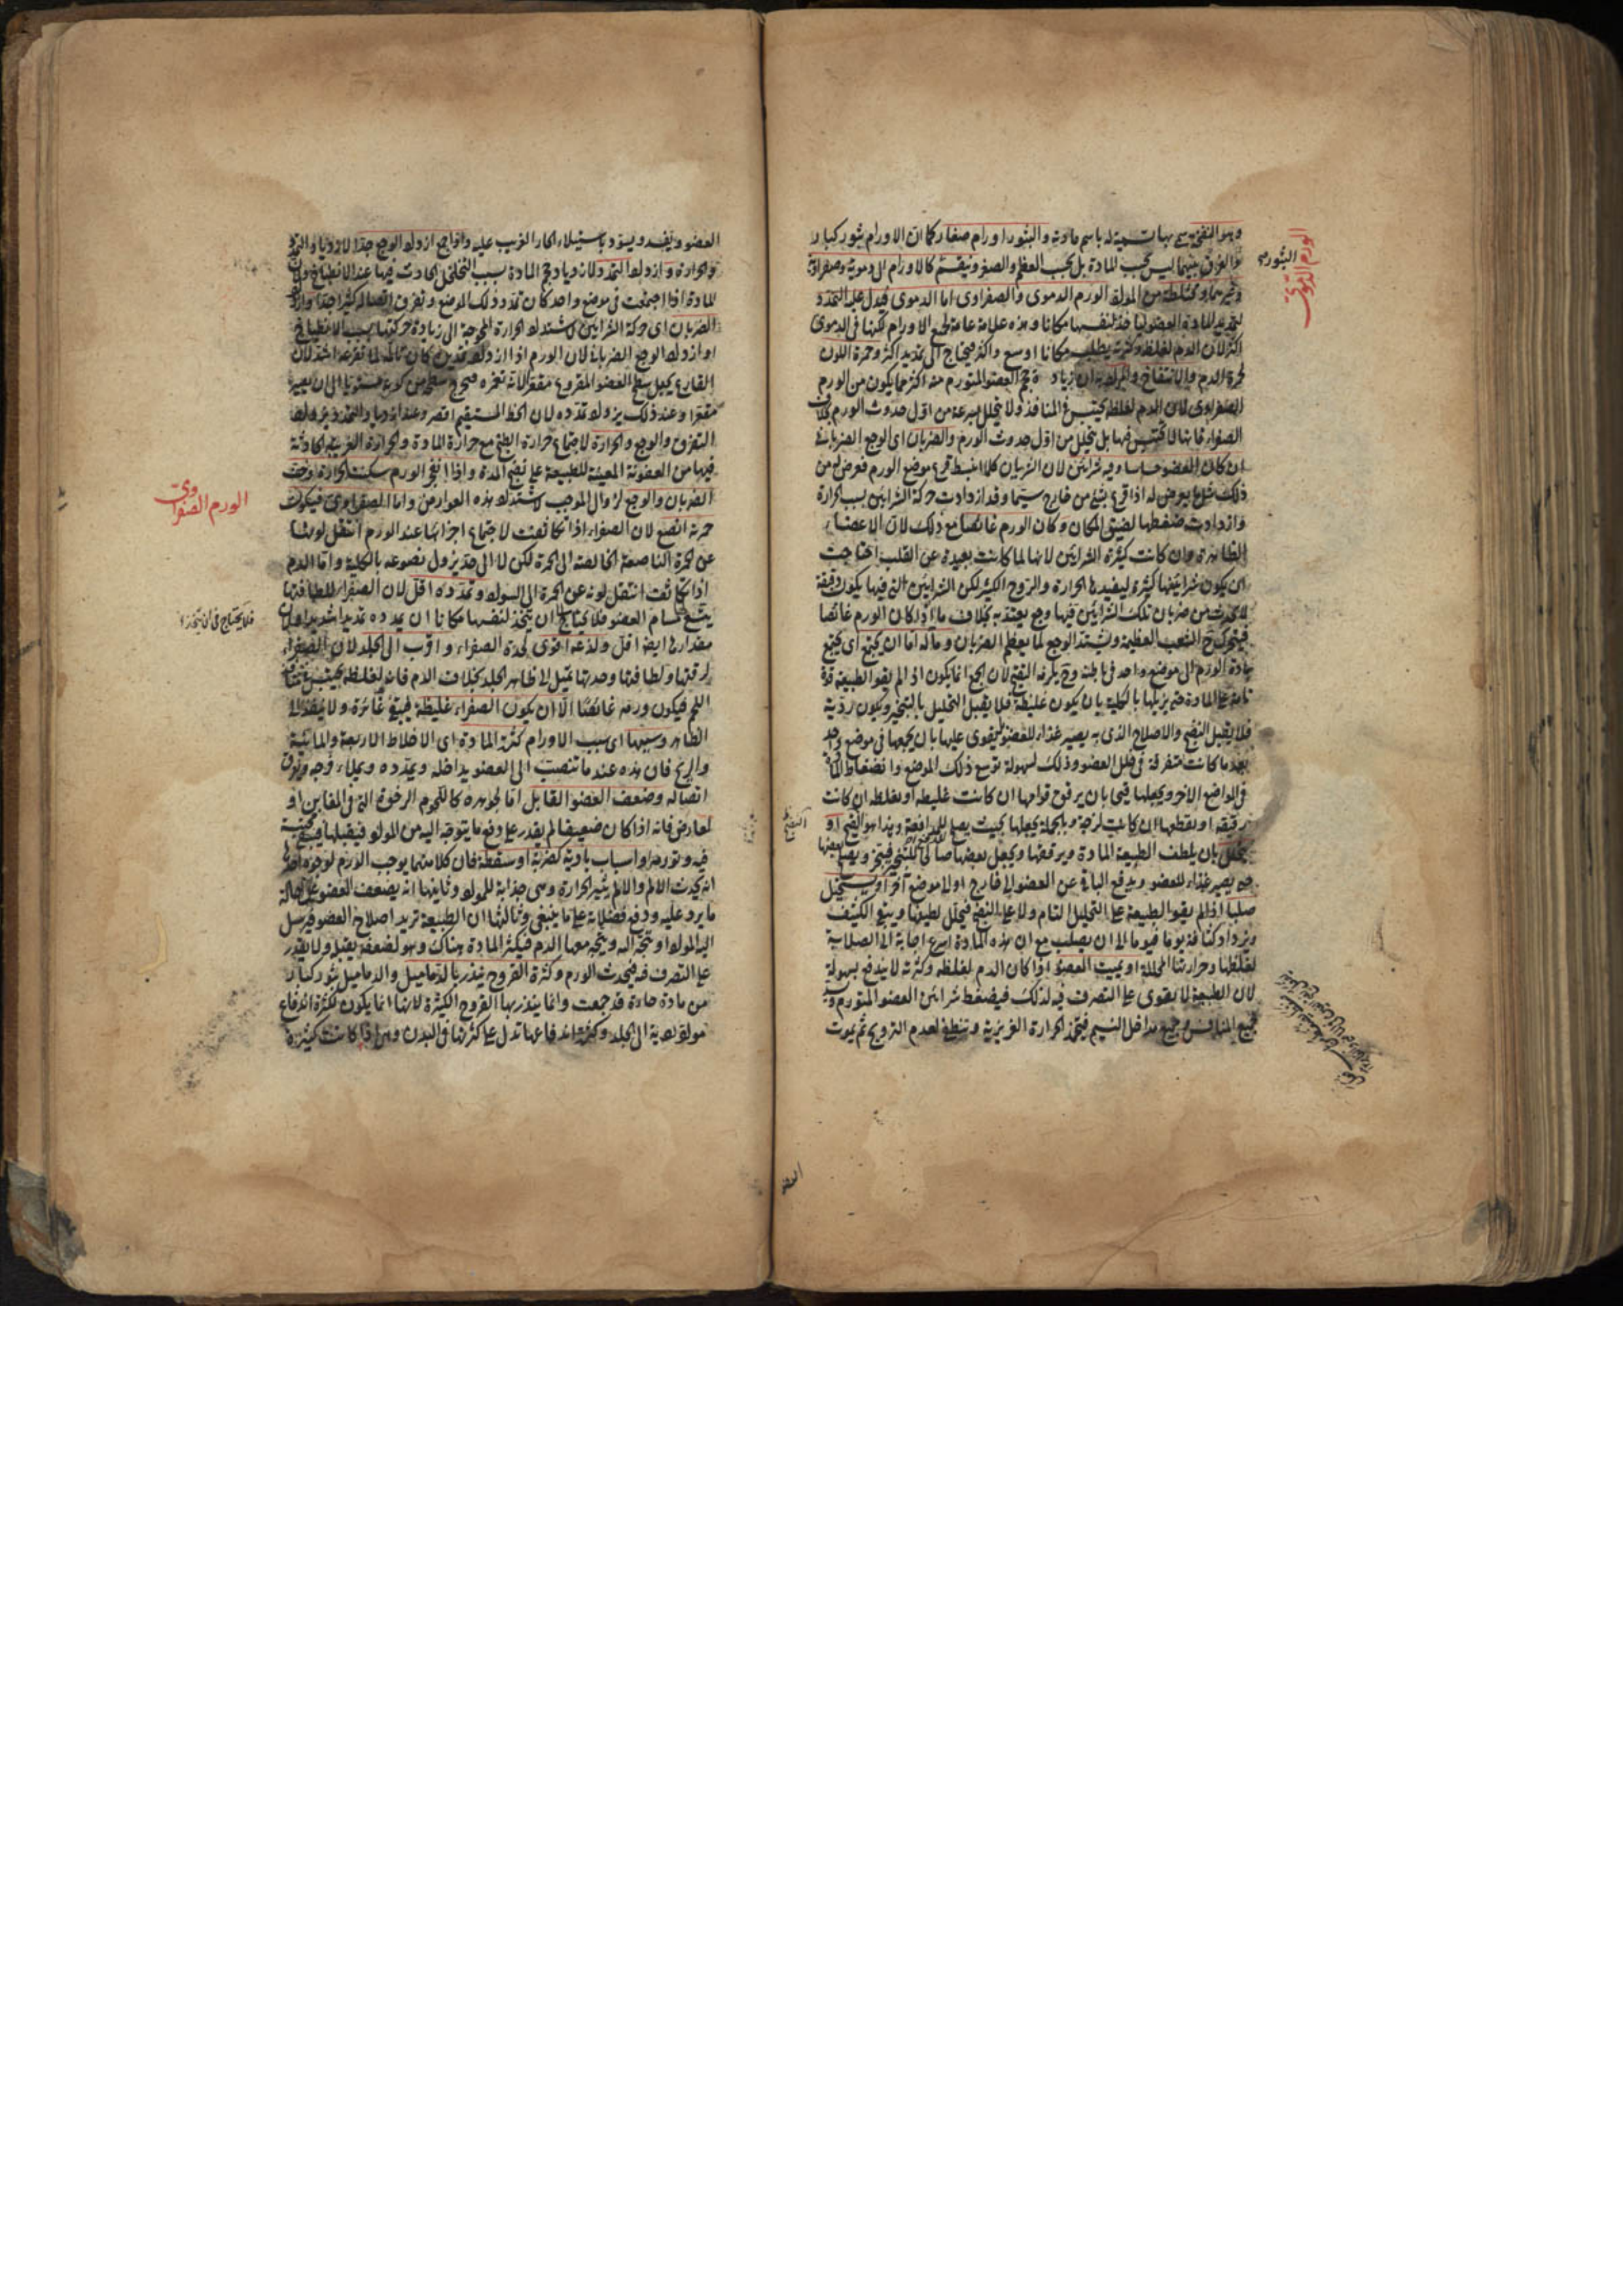 وهو النفخة سمى بها تسمية له باسم مادته والبثور اورام صغار كما ان الاورام بثور كبار
والفرق بينهما ليس بحسب المادة بل بحسب العظم والصغر وتنقسم كالاورام الى دموية وصفراوية
وغيرهما ومختلطة من المواد الورم الدموى والصفراوى اما الدموى فيدل عليه التمدد
لتمديد المادة العضو ليأخذ لنفسها مكانا وهذه علامة عامة لجميع الاورام لكنها فى الدموى
اكثر لان الدم لغلظه وكثرته يطلب مكانا اوسع واكثر فيحتاج الى تمديد اكثر وحمرة اللون
لحمرة الدم والانتفاخ والمراد به ان زيادة حجم العضو المتورم منه اكثر مما يكون من الورم
الصفراوى لان الدم لغلظه يحتبس فى المنافذ ولا يتحلل بسرعة من اول حدوث الورم بخلاف
الصفراء فانها لا تحتبس فيها بل يتحلل من اول حدوث الورم والضربان اى الوجع الضربانى
ان كان العضو حساسا وفيه شرايين لان الشريان كلما انبسط قرع موضع الورم فعرض له من
ذلك مثل ما يعرض له اذا قرع بشئ من خارج سيما وقد ازدادت حركة الشرايين بسبب الحرارة
وازدادت ضغطها لضيق المكان وكان الورم غائصا مع ذلك لان الاعضاء
الظاهرة وان كانت كثيرة الشرايين لانها لما كانت بعيدة عن القلب احتاجت
ان يكون شرايينها كثيرة ليفيدها الحرارة والروح الكثير لكن الشرايين التى فيها يكون دقيقة
لا يحدث من ضربان تلك الشرايين فيها وجع يعتد به بخلاف ما اذا كان الورم غائصا
فيتحرك الشعب العظيمة ويشتد الوجع لما يعظم الضربان وماله اما ان يجتمع اى يجتمع
مادة الورم الى موضع واحد فى باطنه وح يلزمه التقيح لان الجمع انما يكون اذا لم يقو الطبيعة قوة
تامة على المادة حتى يزيلها بالكلية بان يكون غليظة فلا يقبل التحليل بالتبخير ويكون ردية
فلا يقبل النضج والاصلاح الذى به يصير غذاء للعضو ليقوى عليها بان يجمعها فى موضع واحد
بعد ما كانت متفرقة فى خلل العضو وذلك لسهولة توسع ذلك الموضع وانضغاط المادة
فى المواضع الاخر ويجعلها قيحا بان يرقق قوامها ان كانت غليظة او يغلظه ان كانت
رقيقة او يقطعها ان كانت لزجة وبالجملة يجعلها بحيث يصلح للدافعة وهذا هو القيح او
يتحلل بان يلطف الطبيعة المادة ويرققها ويجعل بعضها صالحا للتبخير فيتبخر ويصلح بعضها
حتى يصير غذاء للعضو ويدفع الباقى عن العضو الى خارج او الى موضع آخر او يستحيل
صلبا اذا لم يقو الطبيعة على التحليل التام ولا على النضج فيتحلل لطيفها ويبقى الكثيف
ويزداد كثافة يوما فيوما الى ان يصلب مع ان هذه المادة اسرع اجابة الى الصلابة
لغلظها وحرارتها المحللة او يميت العضو اذا كان الدم لغلظه وكثرته لا يندفع بسهولة
لان الطبيعة لا يقوى على التصرف فيه لذلك فيضغط شرايين العضو المتورم
جميع المنافذ مداخل النسيم فيتحر الحرارة الغريزية وتنطفئ لعدم الترويح ثم يموت
البثور
الورم الدموى
العضو
العضو ويفسد ويسود باستيلاء الحار الغريب عليه واذا جمع ازداد الوجع جدا لازدياد التمدد
والحرارة وازداد التمدد لازدياد حجم المادة بسبب التخلخل الحادث فيها عند الانطباخ ولان
المادة اذا اجتمعت فى موضع واحد كان تمدد ذلك الموضع وتفرق اتصاله كثيرا جدا وازداد
الضربان اى حركة الشرايين لاشتداد الحرارة المحوجة الى زيادة حركتها بسبب الانطباخ
او ازداد الوجع الضربانى لان الورم اذا ازداد تمديده كان تألمه لما تقرعه اشد لان
القارع يجعل سطح العضو المقروع مقعرا لانه تغمزه فيخرج سطحه من كونه مستويا الى ان يصير
مقعرا وعند ذلك يزداد تمدده لان الخط المستقيم اقصر وعند ازدياد التمدد يزداد
التفرق والوجع والحرارة لاجتماع حرارة الطبخ مع حرارة المادة والحرارة الغريبة الحادثة
فيها من العفونة المعينة للطبيعة على نضج المدة واذا انفجر الورم سكنت الحرارة وخف
الضربان والوجع لزوال الموجب لاشتداد هذه العوارض واما الصفراوى فيكون
حمرته انصع لان الصفراء اذا تكاثفت لاجتماع اجزائها عند الورم انتقل لونها
عن الحمرة الناصعة الخالصة الى الحمرة لكن لا الى حد يزول نصوعه بالكلية واما الدم
اذا تكاثفت انتقل لونه عن الحمرة الى السواد وتمدده اقل لان الصفراء للطافتها
يتسع مسام العضو فلا يحتاج ان يتخذ لنفسها مكانا ان يمدده تمديدا شديدا ولان
مقدارها ايضا اقل ولذعه اقوى لحدة الصفراء واقرب الى الجلد لان الصفراء
لرقتها ولطافتها وحدتها تميل الى ظاهر الجلد بخلاف الدم فانه لغلظه يحتبس
اللحم فيكون ورمه غائصا الا ان يكون الصفراء غليظة فيبقى غائرة ولا ينفذ الى
الظاهر وسببها اى سبب الاورام كثرة المادة اى الاخلاط الاربعة والمائية
والريح فان هذه عندما تنصب الى العضو يداخله ويمدده ويملاء فرجه ويفرق
اتصاله وضعف العضو القابل اما لجوهره كاللحوم الرخوة التى فى المغابن او
لعارض فانه اذا كان ضعيفا لم يقدر على دفع ما يتوجه اليه من المواد فيقبلها فيبقى محتبسة
فيه وتورمه او اسباب بادية كضربة او سقطة فان كلا منهما يوجب الورم لوجوه احدها
انه يحدث الالم والالم يثير الحرارة وهى جذابة للمواد وثانيها انه يضعف العضو عن احالة
ما يرد عليه ودفع فضلاته على ما ينبغى وثالثها ان الطبيعة تريد اصلاح العضو فيرسل
اليه المواد او يتجه اليه ويتجه معها الدم فيكثر المادة هناك وهو لضعفه يقبل ولا يقدر
على التصرف فيه فيحدث الورم وكثرة القروح ينذر بالدماميل والدماميل بثور كبار
من مادة حادة قد جمعت وانما ينذر بها القروح الكثيرة لانها انما يكون لكثرة اندفاع
مواد لاصقة الى الجلد وكثرة اندفاعها تدل على كثرتها فى البدن وهى اذا كانت كثيرة
الورم الصفراوى
فلا يحتاج فى ان يتخذ